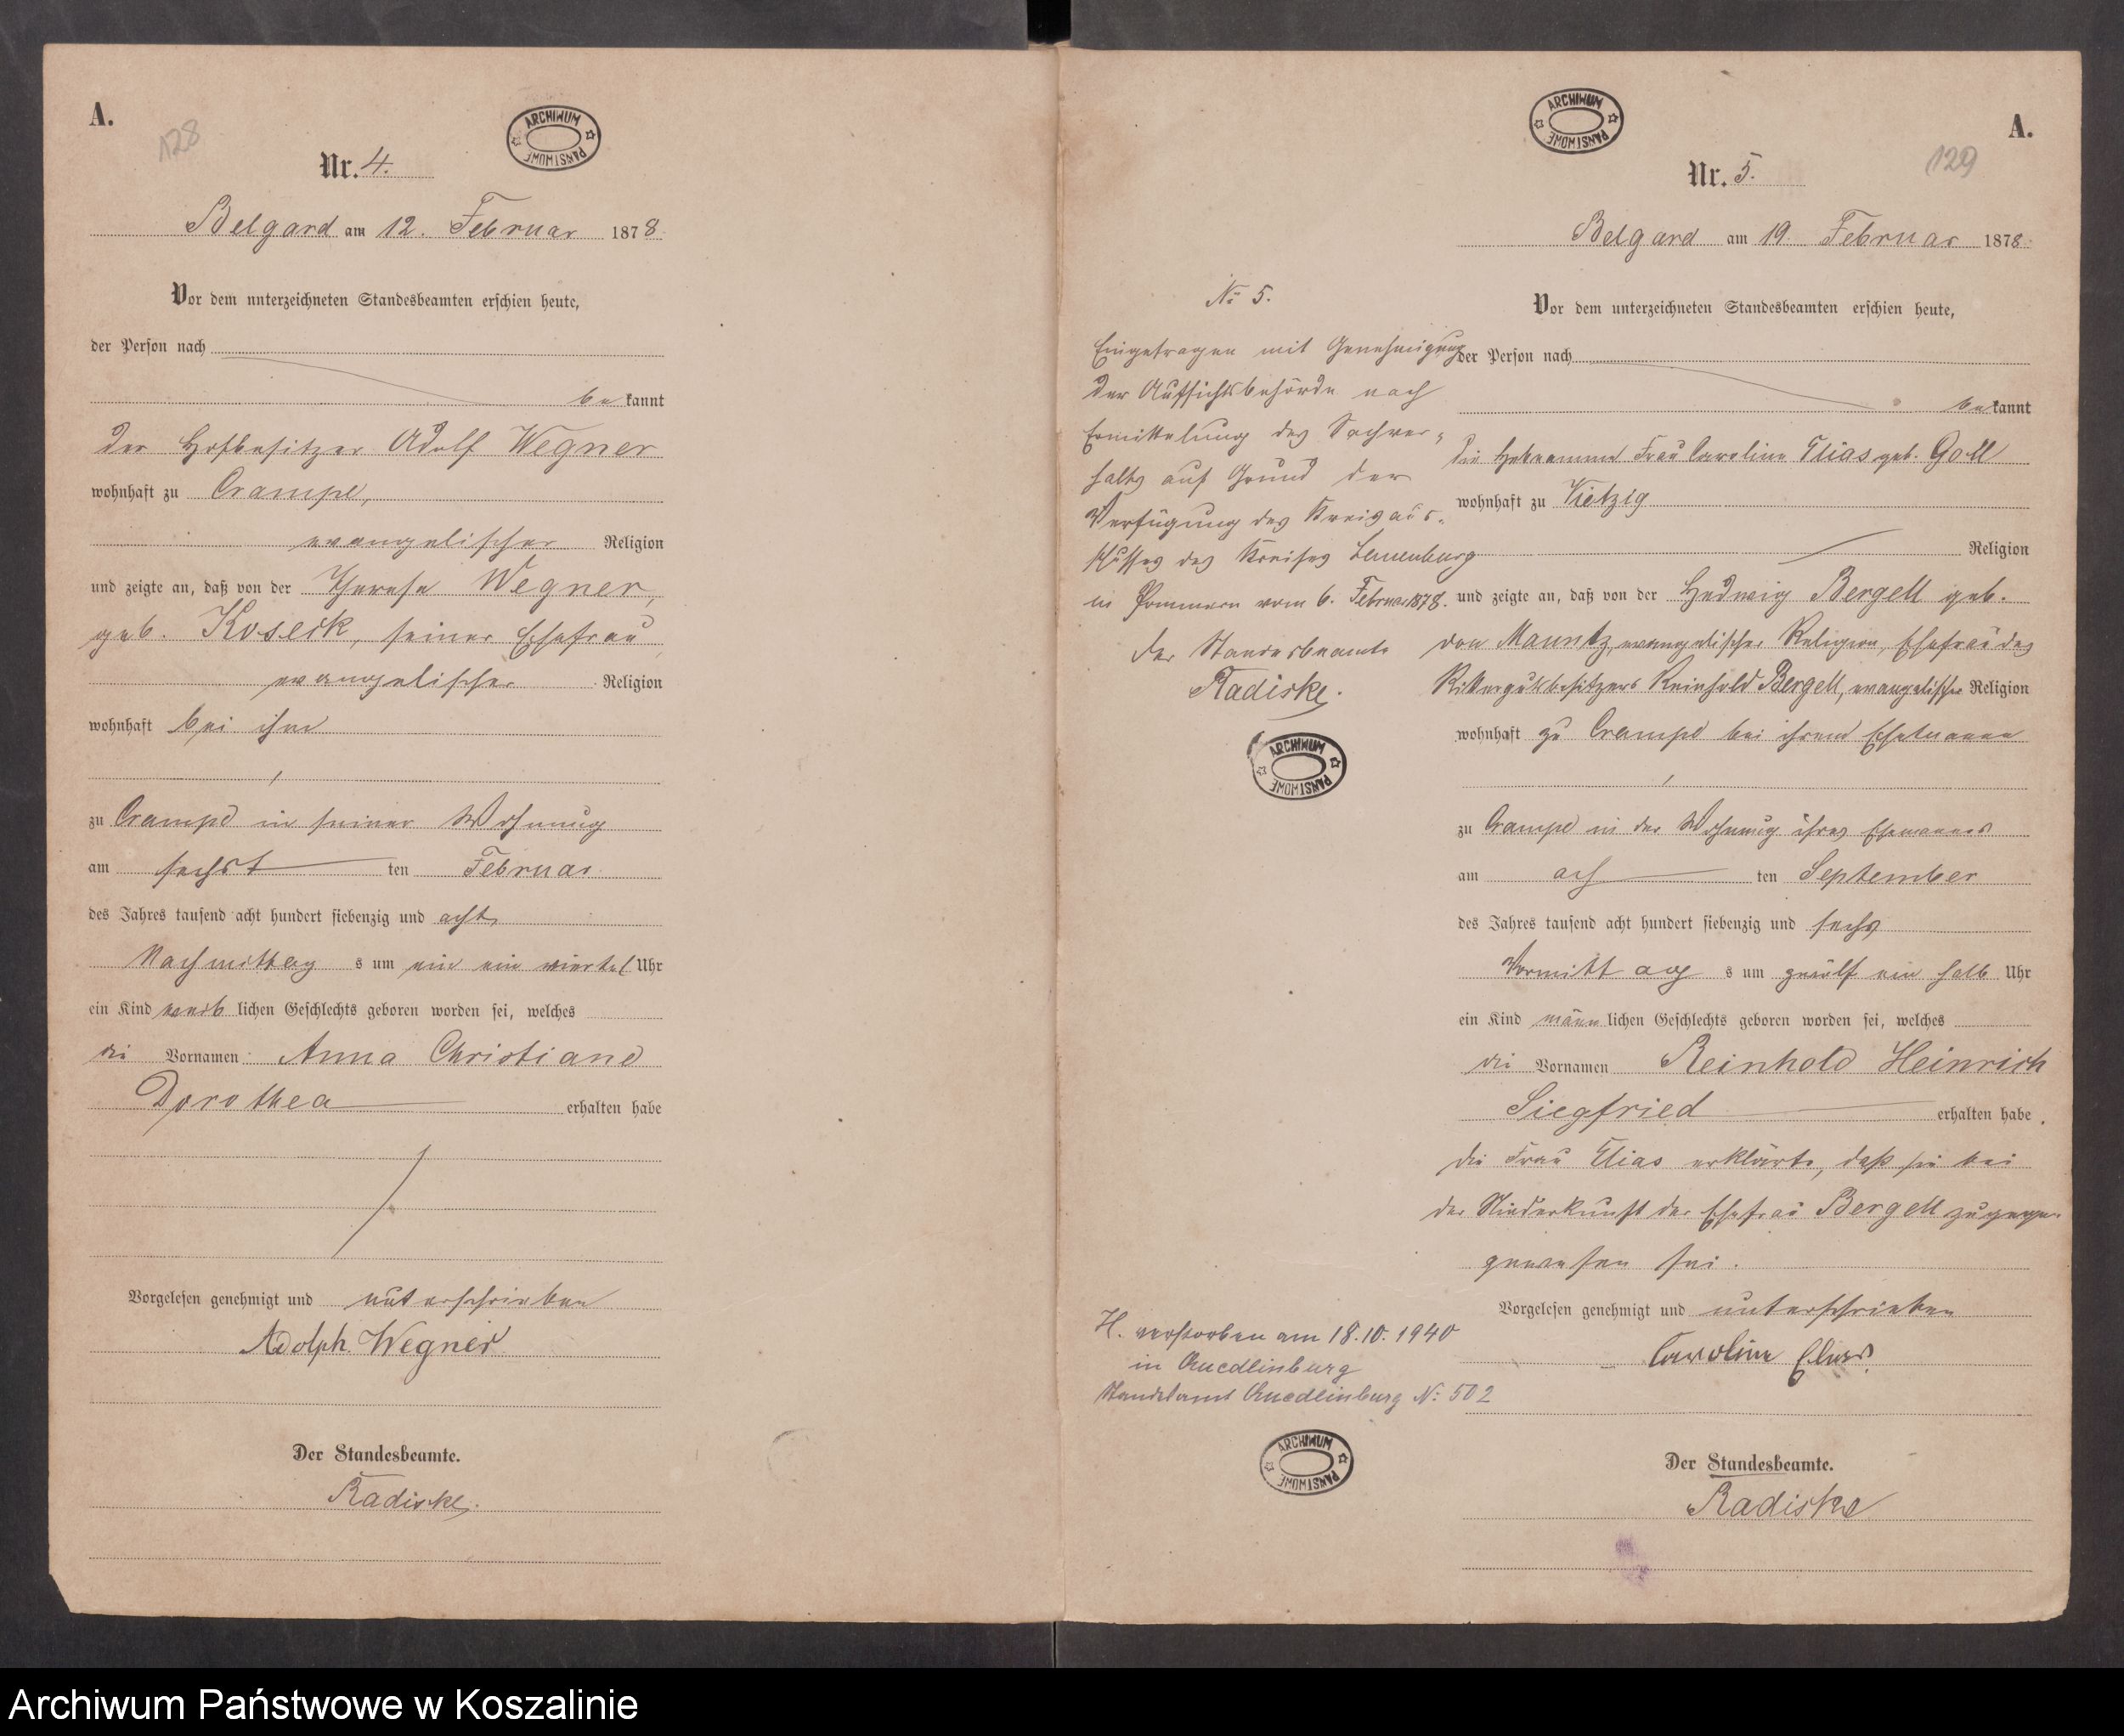 A.
128
ARCHIWUM PAŃSTWOWE
Nr. 4.
Belgard am 12. Februar 1878.
Vor dem unterzeichneten Standesbeamten erschien heute,
der Person nach
be kannt
der Hofbesitzer Adolf Wegner
wohnhaft zu Crampe,
evangelischer Religion
und zeigte an, daß von der Therese Wegner,
geb. Koseik, seiner Ehefrau,
evangelischer Religion
wohnhaft bei ihm
zu Crampe in seiner Wohnung
am sechst ten Februar
des Jahres tausend acht hundert siebenzig und acht,
Nachmittag s um ein ein viertel Uhr
ein Kind weib lichen Geschlechts geboren worden sei, welches
die Vornamen Anna Christiane
Dorothea erhalten habe
Vorgelesen genehmigt und unterschrieben
Adolph Wegner
Der Standesbeamte.
Radiske.
ARCHIWUM PAŃSTWOWE
A.
129
Nr. 5.
Belgard am 19. Februar 1878.
Vor dem unterzeichneten Standesbeamten erschien heute,
der Person nach
be kannt
die Hebeamme Frau Caroline Elias geb. Goll
wohnhaft zu Vietzig
Religion
und zeigte an, daß von der Hedwig Bergell geb.
von Mauntz, evangelischer Religion, Ehefrau des
Rittergutsbesitzers Reinhold Bergell, evangelischer Religion
wohnhaft zu Crampe bei ihrem Ehemanne
zu Crampe in der Wohnung ihres Ehemannes
am ach ten September
des Jahres tausend acht hundert siebenzig und sechs
Vormittag s um zwölf ein halb Uhr
ein Kind männ lichen Geschlechts geboren worden sei, welches
die Vornamen Reinhold Heinrich
Siegfried erhalten habe.
Die Frau Elias erklärte, daß sie bei
der Niederkunft der Ehefrau Bergell zugegen
gewesen sei.
Vorgelesen genehmigt und unterschrieben
Caroline Elias.
Der Standesbeamte.
Radiske
No 5.
Eingetragen mit Genehmigung
der Aufsichtsbehörde nach
Ermittelung des Sachver-
halts auf Grund der
Verfügung des Kreisaus-
schusses des Kreises Lauenburg
in Pommern vom 6. Februar 1878.
Der Standesbeamte
Radiske.
ARCHIWUM PAŃSTWOWE
H. verstorben am 18.10.1940
in Quedlinburg
Standesamt Quedlinburg No: 502
ARCHIWUM PAŃSTWOWE
Archiwum Państwowe w Koszalinie